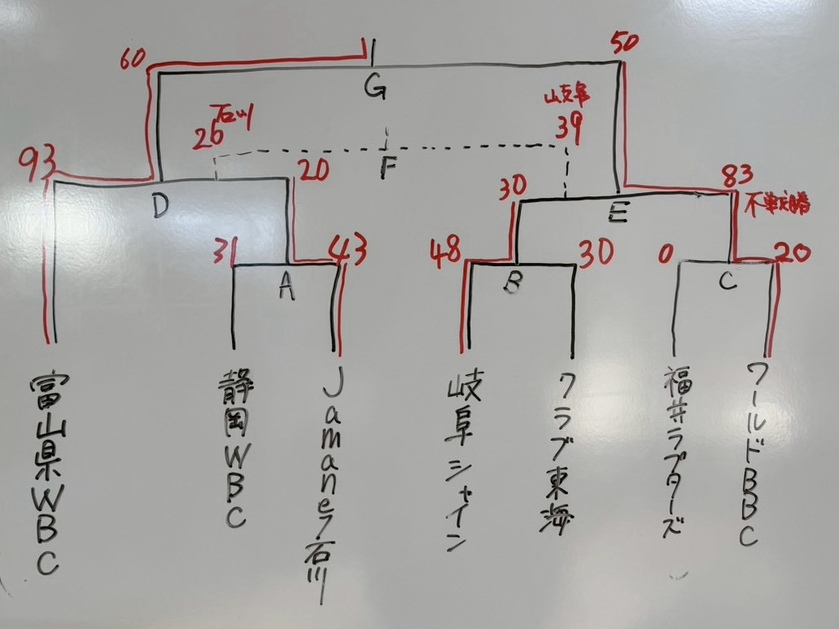 60
50
G
石川
26
岐阜
39
F
93
20
30
83
不戦勝
D
E
31
43
48
30
0
20
A
B
C
富山県WBC
静岡WBC
Jamaneフ石川
岐阜シャイン
クラブ東海
福井ラプターズ
ワールドBBC